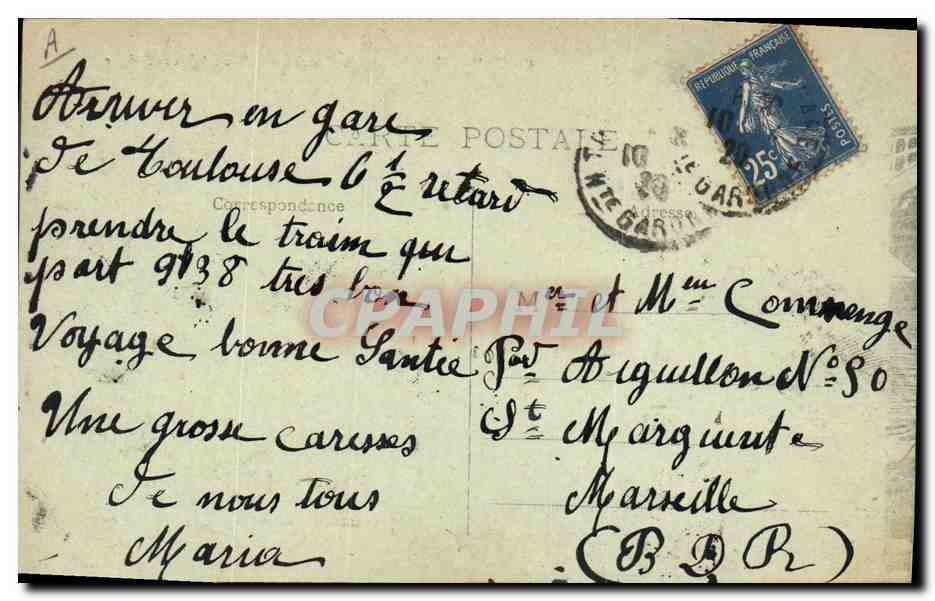 A
Arriver en gare
de Toulouse 6 1/2 retard
prendre le traim qui
part 9h38 tres bon
Voyage bonne Santée
Une grosse caresses
de nous tous
Maria
CARTE POSTALE
Correspondance
Adresse
Mr et Mme Commenge
Bvd Aiguillon No 50
St Marguerite
Marseille
(B D R)
RÉPUBLIQUE FRANÇAISE
POSTES
25c
10
20
Hte GARON
CPAPHIL